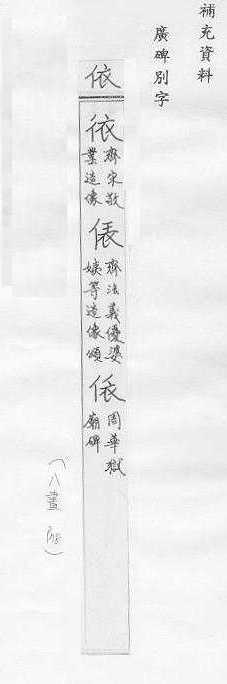 補充資料
廣碑別字
依
齊宋敬
業造像
俵
齊法義優婆
姨等造像頌
周華嶽
廟碑
八畫